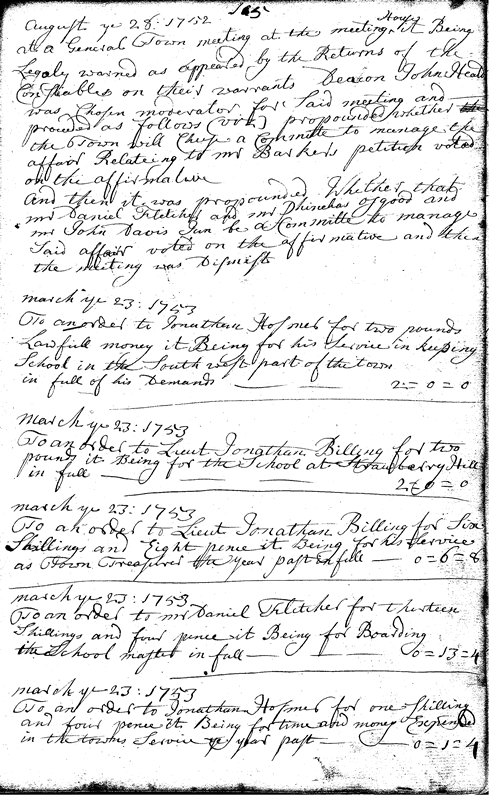 165
August ye 28: 1752
at a General Town meeting at the meeting House it Being
Legaly warned as appeared by the Returns of the
Constables on their warrants Deacon John Heald
was Chosen moderator for Said meeting and
proceded as follows (viz) propounded whether
the Town will Chuse a Committe to manage the
affair Relateing to mr Barkers petition voted
on the affirmative
And then it was propounded Whether that
mr Daniel Fletcher and mr Phinehas osgood and
mr John Davis Jun be a Committe to manage
Said affair voted on the affirmative and then
the meeting was Dismist
march ye 23: 1753
To an order to Jonathan Hosmer for two pounds
Lawfull money it Being for his Service in keeping
School in the South west part of the town
in full of his Demands 2 = 0 = 0
march ye 23: 1753
To an order to Lieut Jonathan Billing for two
pound it Being for the School at Strawberry Hill
in full 2 = 0 = 0
march ye 23: 1753
To an order to Lieut Jonathan Billing for Six
Shillings and Eight pence it Being for his Service
as Town Treasurer the year past in full 0 = 6 = 8
march ye 23: 1753
To an order to mr Daniel Fletcher for thirteen
Shillings and four pence it Being for Boarding
the School master in full 0 = 13 = 4
march ye 23: 1753
To an order to Jonathan Hosmer for one Shilling
and four pence it Being for time and money Expended
in the towns Service ye year past 0 = 1 = 4